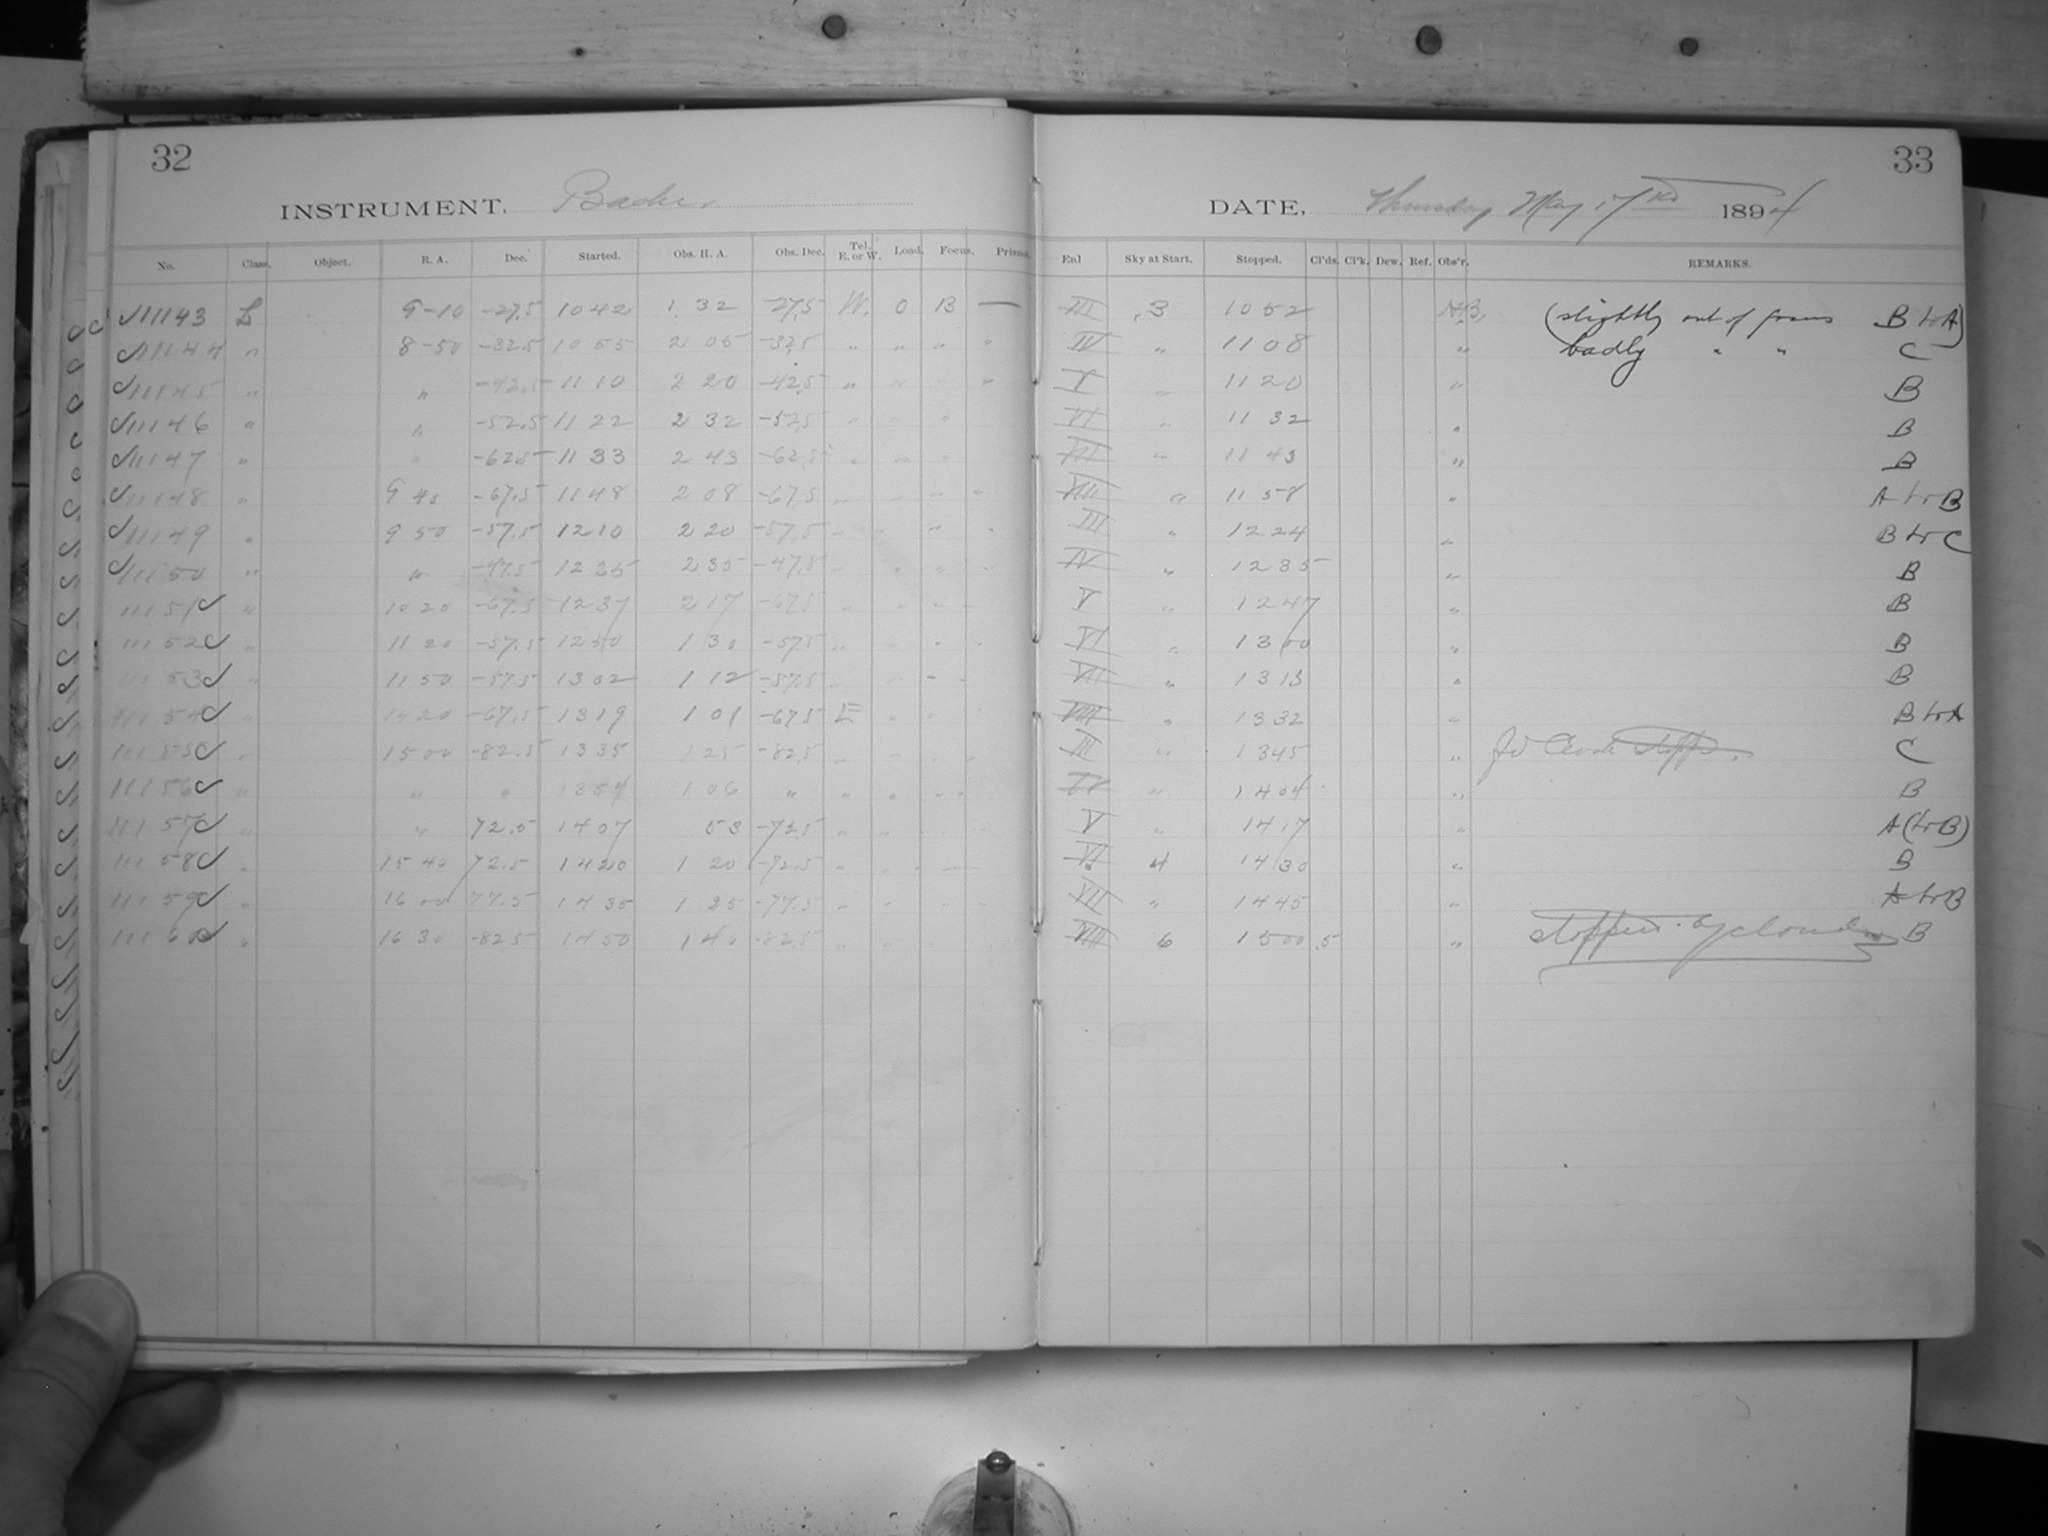 32
33
INSTRUMENT, Bache.
DATE, Thursday May 17 1894
No. Class. Object. R. A. Dec. Started. Obs. H. A. Obs. Dec. Tel. E. or W. Load. Focus. Prisms. Enl Sky at Start. Stopped. Cl'ds. Cl'k. Dew. Ref. Obs'r. REMARKS.
11143 L 9-10 -27.5 10 42 1 32 -27.5 W. 0 B — III 3 10 52 (slightly out of focus B to A)
11144 " 8-50 -32.5 10 55 2 05 -32.5 " " " " IV " 11 08 " badly " " C
11145 " " -42.5 11 10 2 20 -42.5 " " " " V " 11 20 " B
11146 " " -52.5 11 22 2 32 -52.5 " " " VI " 11 32 " B
11147 " " -62.5 11 33 2 43 -62.5 " " " VII " 11 43 " B
11148 " 9 40 -67.5 11 48 2 08 -67.5 " " " " VIII " 11 58 " A to B
11149 " 9 50 -57.5 12 10 2 20 -57.5 " " " " III " 12 24 " B to C
11150 " " -47.5 12 25 2 35 -47.5 " " " " IV " 12 35 " B
11151 " 10 20 -67.5 12 37 2 17 -67.5 " " " " V " 12 47 " B
11152 " 11 20 -57.5 12 50 1 30 -57.5 " " " " VI " 13 00 " B
11153 " 11 50 -57.5 13 02 1 12 -57.5 " " " " VII " 13 13 " B
11154 " 14 20 -67.5 13 19 1 01 -67.5 E " " " VIII " 13 32 " B to A
11155 " 15 00 -82.5 13 35 1 25 -82.5 " " " " III " 13 45 " C
11156 " " " 13 54 1 06 " " " " " IV " 14 04 " B
11157 " " 72.5 14 07 53 -72.5 " " V " 14 17 " A (to B)
11158 " 15 40 72.5 14 20 1 20 -72.5 " " " VI 4 14 30 " B
11159 " 16 00 77.5 14 35 1 25 -77.5 " " " " VII " 14 45 " A to B
11160 " 16 30 -82.5 14 50 1 40 -82.5 " " " " VIII 6 15 00 .5 " stopped by clouds B